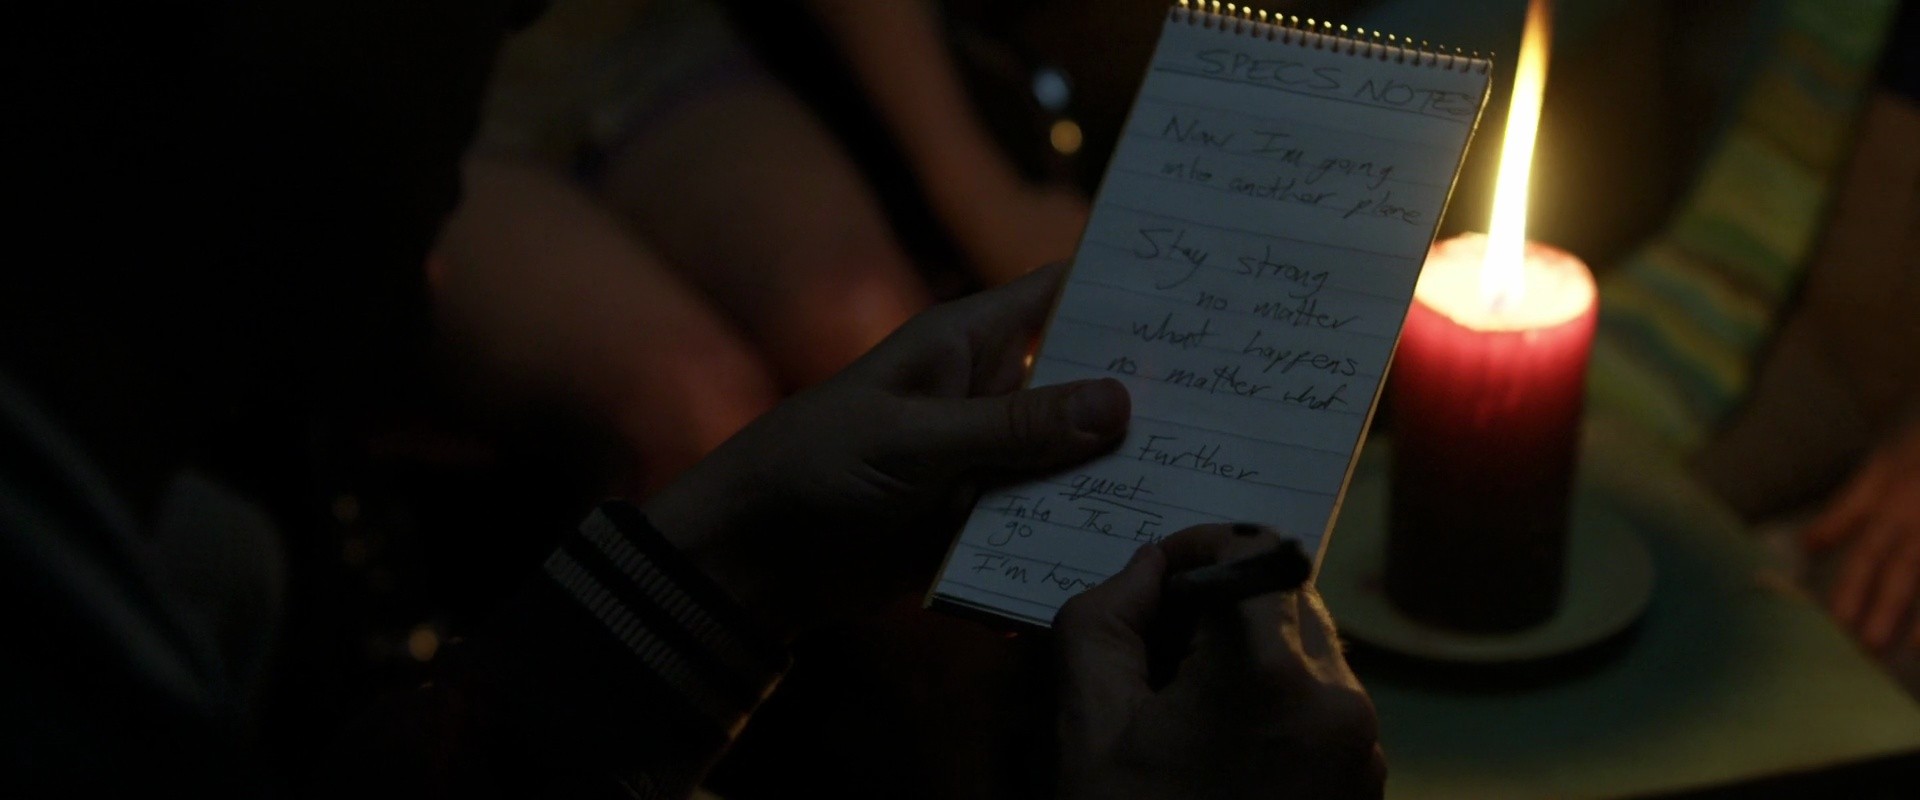 SPECS NOTES
Now I'm going
into another plane
Stay strong
no matter
what happens
no matter what
Further
quiet
Into The
go
I'm here